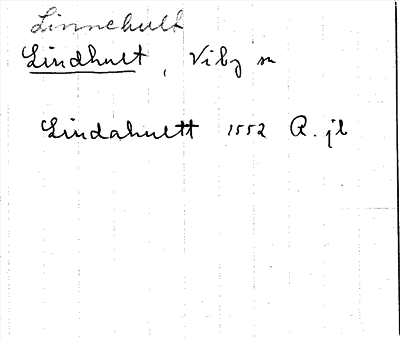 Linnehult
Lindhult, Viby sn
Lindahultt 1552 R. jb